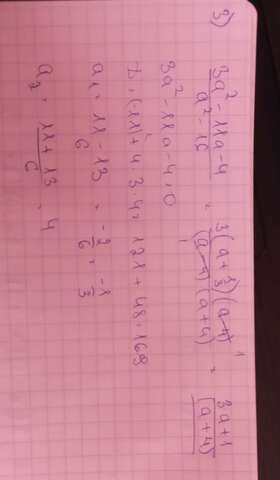 3)
3a² - 11a - 4 / a² - 16 = 3(a + 1/3)(a - 4) / (a - 4)(a + 4) = 3a + 1 / (a + 4)
3a² - 11a - 4 = 0
D = (-11)² + 4 · 3 · 4 = 121 + 48 = 169
a₁ = 11 - 13 / 6 = -2/6 = -1/3
a₂ = 11 + 13 / 6 = 4